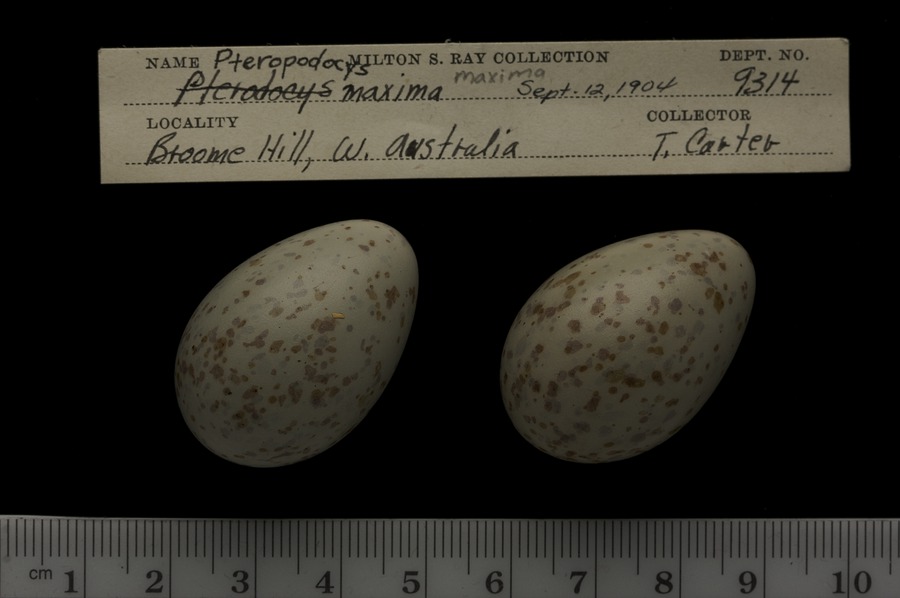 NAME Pteropodocys MILTON S. RAY COLLECTION DEPT. NO.
Pterodocys maxima maxima Sept. 12, 1904 9314
LOCALITY COLLECTOR
Broome Hill, W. Australia T. Carter
cm 1 2 3 4 5 6 7 8 9 10